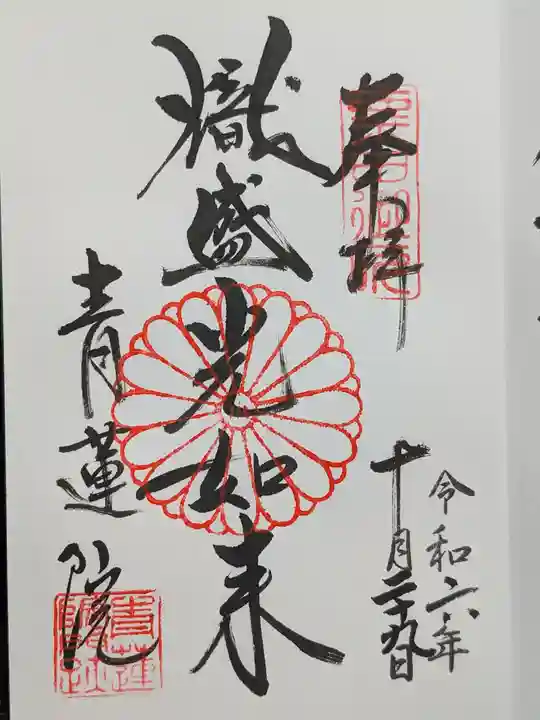 奉拝
令和六年
十月二十九日
熾盛光如来
青蓮院
青蓮院門跡